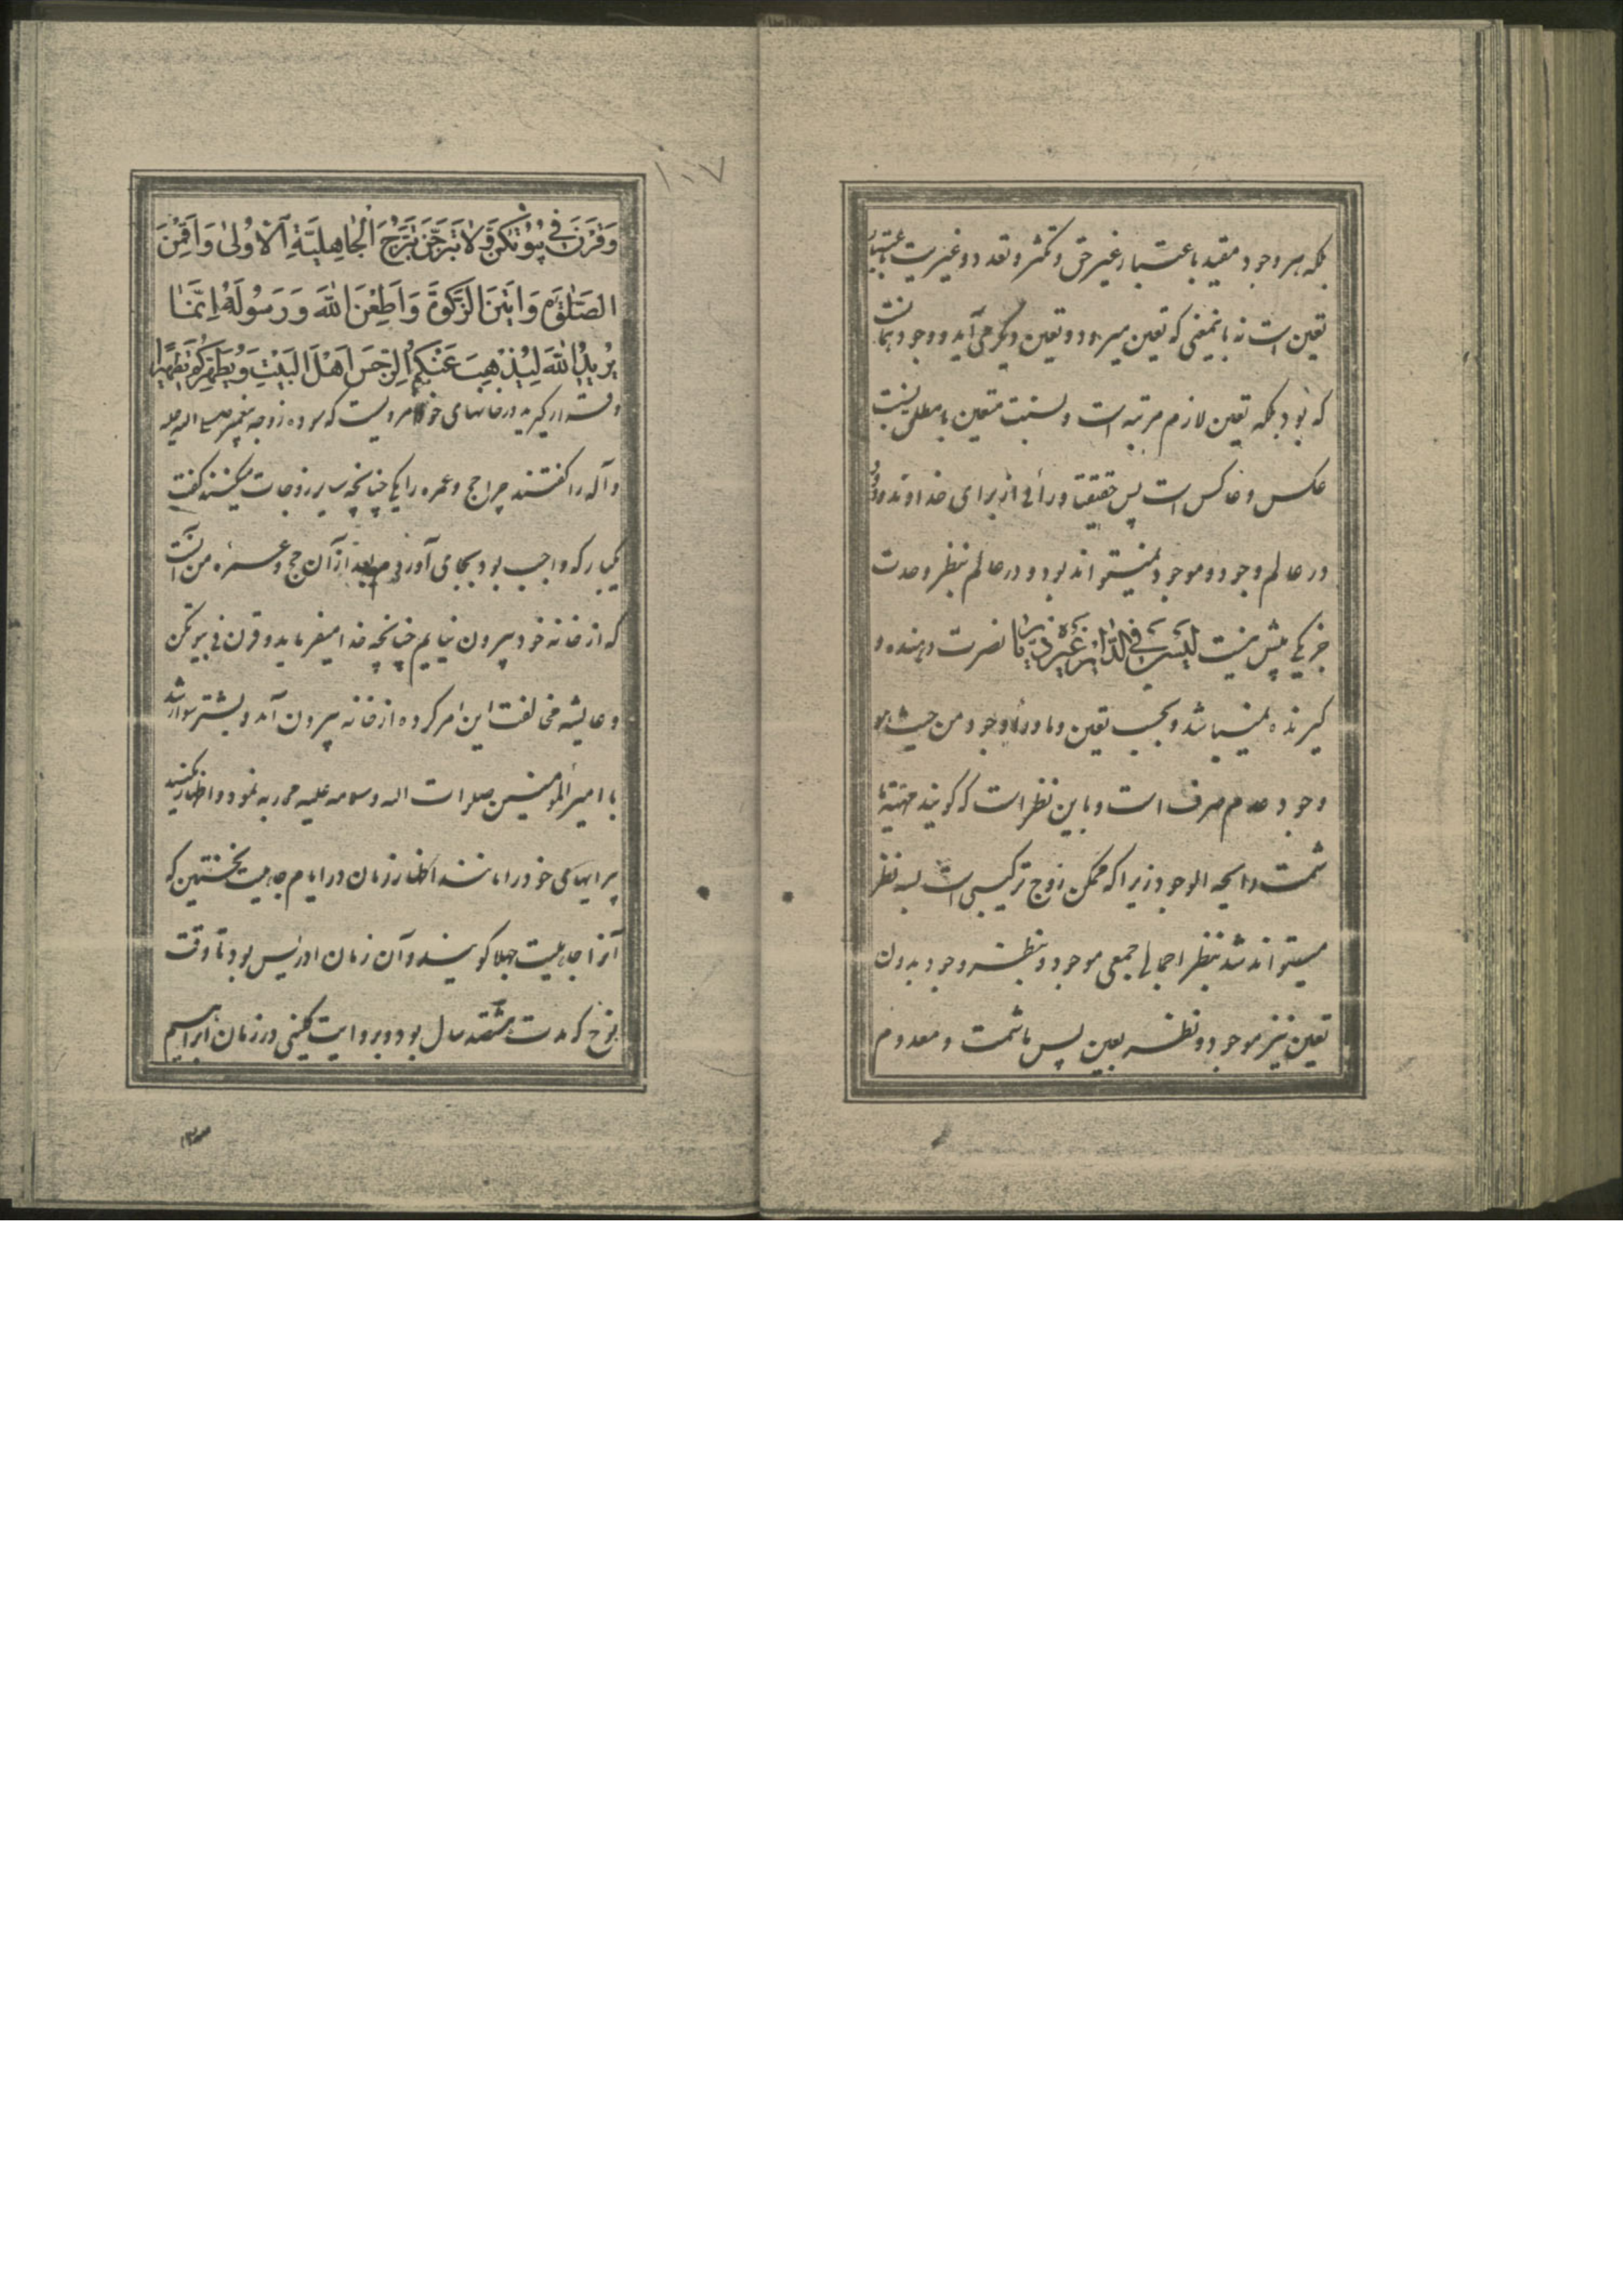 بلکه هر وجود مقید باعتبار غیر حق و تکثر و تعدد و غیریت باعتبار
تعین است نه بانمعنی که تعین میرود و تعین دیگر می‌آید و وجود همانست
که بود بلکه تعین لازم مرتبه است و نسبت متعین بامطلق نسبت
عکس و عاکس است پس حقیقتا ورائی از برای خداوند ودود
در عالم وجود و موجود نمیتواند بود و در عالم بنظر وحدت
جز یکی بیش نیست لیس فی الدار غیره دیار نصرت دهنده و
گیرنده نمیباشد و بحسب تعین و ماوراء وجود من حیث هو
وجود عدم صرف است و باین نظر است که گویند مهیّة ما
شمت رایحه الوجود زیرا که ممکن زوج ترکیبی است بسه نظر
میتواند شد بنظر اجمالی جمعی موجود و بنظر وجود بدون
تعین نیز موجود و نظر بعین پس ما شمت و معدوم
۱۰۷
وَقَرْنَ فِی بُیُوتِکُنَّ وَلاٰ تَبَرَّجْنَ تَبَرُّجَ الْجٰاهِلِیَّةِ الْاُولیٰ وَاَقِمْنَ
الصَّلٰوةَ وَاٰتِینَ الزَّکٰوةَ وَاَطِعْنَ اللّٰهَ وَرَسُولَهُ اِنَّمٰا
یُرِیدُ اللّٰهُ لِیُذْهِبَ عَنْکُمُ الرِّجْسَ اَهْلَ الْبَیْتِ وَیُطَهِّرَکُمْ تَطْهِیراً
و قرار گیرید در خانهای خود مرویست که سوده زوجه پیغمبر صلی الله علیه
و آله را گفتند چرا حج و عمره رایکا چنانچه سایر زوجات میکنند گفت
یکبار که واجب بود بجای آوردم بعد از آن حج و عمره من آنست
که از خانه خود بیرون نیایم چنانچه خدا میفرماید و قرن فی بیوتکن
و عایشه مخالفت این امر کرده از خانه بیرون آمد و بشتر سوار شد
با امیر المؤمنین صلوات الله و سلامه علیه محاربه نمود و اظهار مکنید
پیرایهای خود را مانند اظهار زنان در ایام جاهلیت نخستین که
آنرا جاهلیت جهلا گویند و آن زمان ادریس بود تا وقت
نوح که مدت هشتصد سال بود و بروایت کلینی در زمان ابراهیم